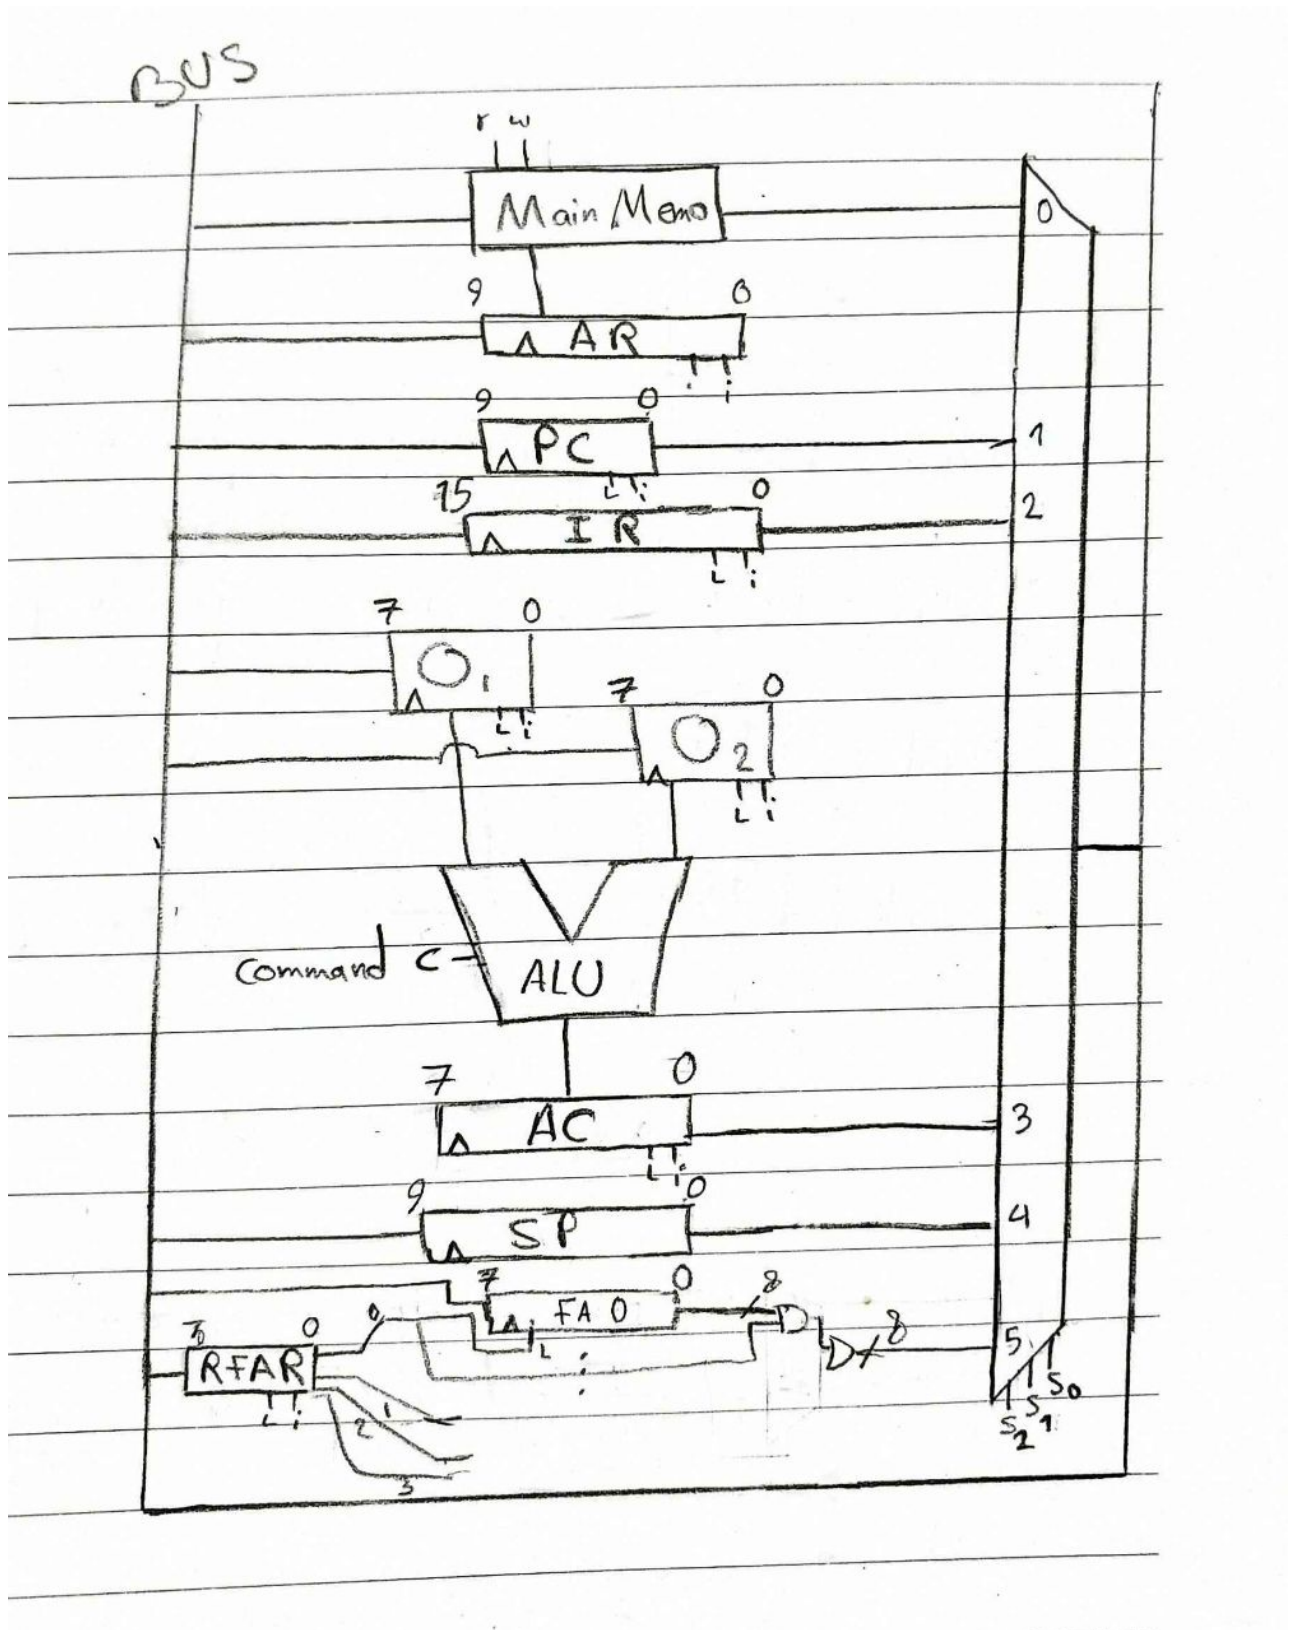 BUS
r w
Main Memo
0
9 0
AR
i
9 0
PC
1
L i
15 0
IR
2
L i
7 0
O1
L i
7 0
O2
L i
Command C
ALU
7 0
AC
3
L i
9 0
SP
4
7 0
FA0
8
L
8
5
0
0
RFAR
L i
1
2
3
S2 S1 S0